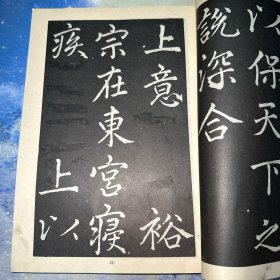 以保天下之
說深合
上意　裕
宗在東宮寢
疾　上以